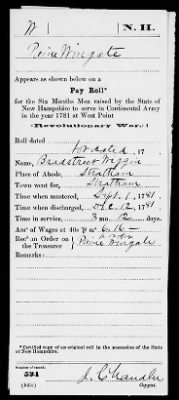 W | N. H.
Paine Wingate
Appears as shown below on a
Pay Roll*
for the Six Months Men raised by the State of
New Hampshire to serve in Continental Army
in the year 1781 at West Point
(Revolutionary War.)
Roll dated
not dated, 17 .
Name, Bradstreet Wiggin
Place of Abode, Stratham
Town went for, Stratham
Time when mustered, Sept. 1, 1781.
Time when discharged, Dec. 12, 1781
Time in service, 3 mo. 12 days.
Am't of Wages at 40s P m. 6.16 —
Rec'd an Order on the Treasurer
Paine Wingate
Remarks:
*Certified copy of an original roll in the possession of the State
of New Hampshire.
Number of record:
534
J. C. Handler
(545c) Copyist.